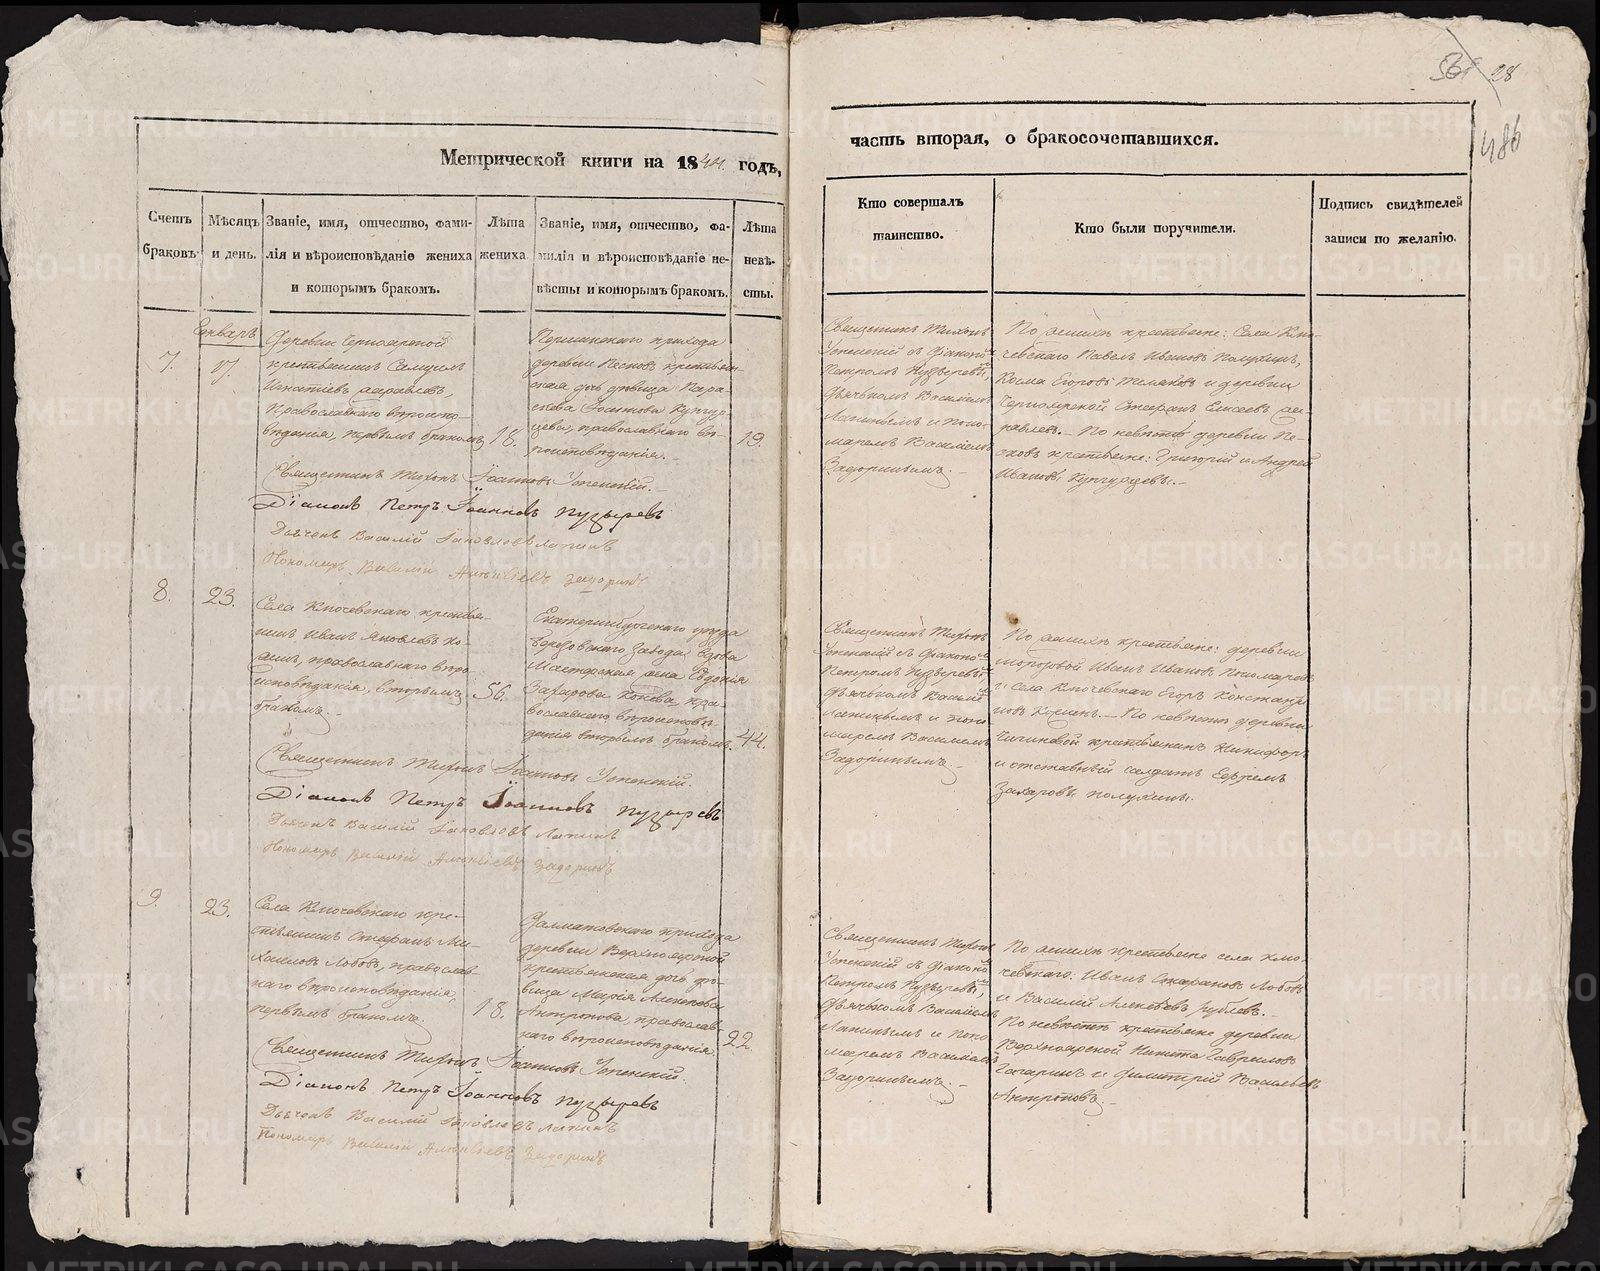 Метрической книги на 1844. годъ,
часть вторая, о бракосочетавшихся.
28
486
Счетъ браковъ.
Мѣсяцъ и день.
Званіе, имя, отчество, фами-
лія и вѣроисповѣданіе жениха
и которымъ бракомъ.
Лѣта
жениха.
Званіе, имя, отчество, фа-
милія и вѣроисповѣданіе не-
вѣсты и которымъ бракомъ.
Лѣта
невѣ-
сты.
Кто совершалъ
таинство.
Кто были поручители.
Подпись свидѣтелей
записи по желанію.
7.
Генварь
17.
Деревни Черноярской
крестьянинъ Самуилъ
Игнатіевъ
Православнаго вѣроиспо-
вѣданія, первымъ бракомъ
18.
прихода
деревни Песковъ крестьян-
ская дочь дѣвица Пара-
скева Кунгур-
цева, православнаго вѣ-
роисповѣданія.
19.
Священникъ Тихонъ
Успенскій съ діакономъ
Петромъ Пузыревымъ,
дьячкомъ Василіемъ
Лапинымъ и поно-
маремъ Василіемъ
Задоринымъ.
По женихѣ крестьяне: Села Клю-
чевскаго Павелъ Ивановъ Полухинъ,
Косма Егоровъ и деревни
Черноярской Стефанъ Елисеевъ
По невѣстѣ деревни Пе-
сковъ крестьяне: Григорій и Андрей
Ивановы Кунгурцевы.
Священникъ Тихонъ Іоанновъ Успенскій.
Діаконъ Петръ Іоанновъ Пузыревъ
Дьячекъ Василій Іаковлевъ Лапинъ
Пономарь Василій Задоринъ
8.
23.
Села Ключевскаго крестья-
нинъ Иванъ Яковлевъ
православнаго вѣро
исповѣданія, вторымъ
бракомъ.
56.
Екатеринбургскаго уѣзда
Березовскаго завода вдова
Мастерская жена Евдокія
Захарова пра-
вославнаго вѣроисповѣ-
данія вторымъ бракомъ.
44.
Священникъ Тихонъ
Успенскій съ діакономъ
Петромъ Пузыревымъ
дьячкомъ Василіемъ
Лапинымъ и поно-
маремъ Василіемъ
Задоринымъ.
По женихѣ крестьяне: деревни
Иванъ Ивановъ Пономаревъ
и села Ключевскаго Егоръ Константи
новъ По невѣстѣ деревни
крестьянинъ Никифоръ
и отставный солдатъ Ефремъ
Захаровы Полухины.
Священникъ Тихонъ Іоанновъ Успенскій.
Діаконъ Петръ Іоанновъ Пузыревъ
Дьячекъ Василій Іаковлевъ Лапинъ
Пономарь Василій Задоринъ
9.
23.
Села Ключевскаго кре-
стьянинъ Стефанъ Ми-
хаиловъ Лобовъ, православ
наго вѣроисповѣданія,
первымъ бракомъ.
18.
Далматовскаго прихода
деревни Верхноярской
крестьянская дочь дѣ-
вица Марія
Антропова, православ-
наго вѣроисповѣданія.
22.
Священникъ Тихонъ
Успенскій съ діакономъ
Петромъ Пузыревымъ,
дьячкомъ Василіемъ
Лапинымъ и поно
маремъ Василіемъ
Задоринымъ.
По женихѣ крестьяне села Клю-
чевскаго: Иванъ Стефановъ Лобовъ
и Василій Алексѣевъ Рублевъ.
По невѣстѣ крестьяне деревни
Верхноярской Никита Гавриловъ
Гагаринъ и Димитрій Васильевъ
Антроповъ.
Священникъ Тихонъ Іоанновъ Успенскій.
Діаконъ Петръ Іоанновъ Пузыревъ
Дьячекъ Василій Іаковлевъ Лапинъ
Пономарь Василій Задоринъ
METRIKI.GASO-URAL.RU